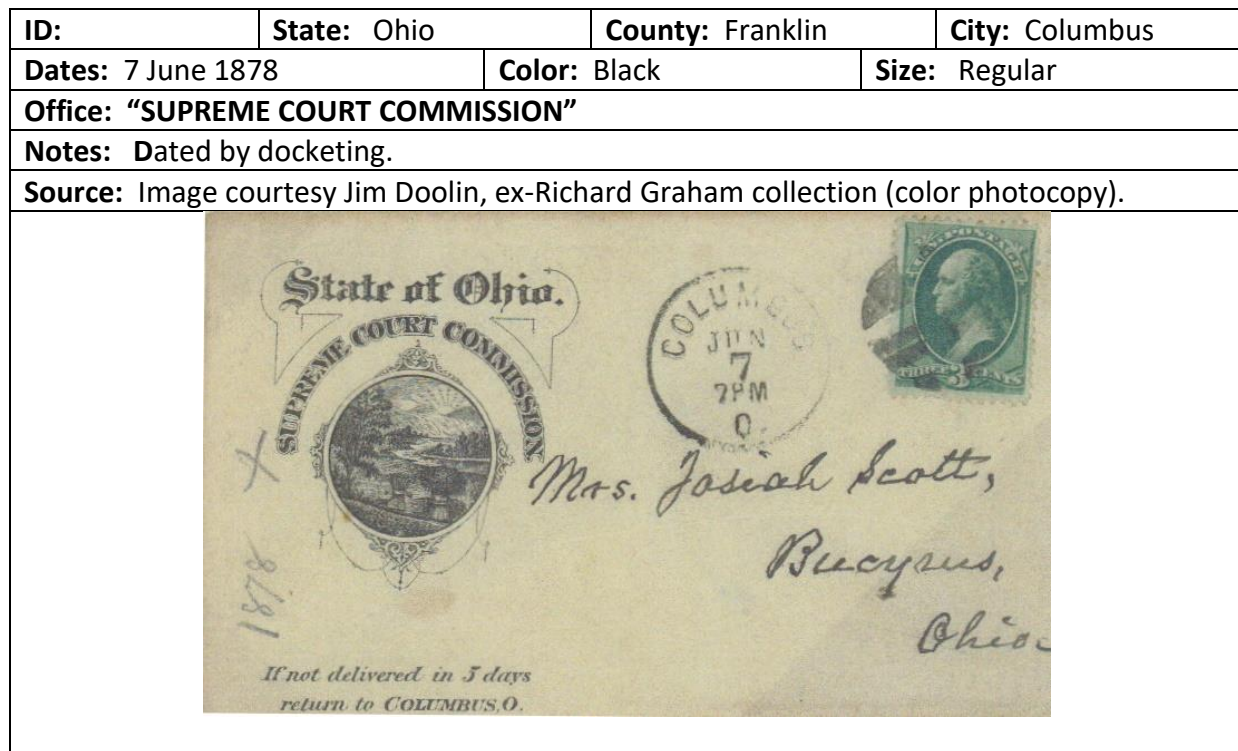 ID: State: Ohio County: Franklin City: Columbus
Dates: 7 June 1878 Color: Black Size: Regular
Office: “SUPREME COURT COMMISSION”
Notes: Dated by docketing.
Source: Image courtesy Jim Doolin, ex-Richard Graham collection (color photocopy).
State of Ohio.
SUPREME COURT COMMISSION
COLUMBUS
JUN
7
7PM
O.
U.S. POSTAGE
THREE 3 CENTS
Mrs. Josiah Scott,
Bucyrus,
Ohio
1878 X
If not delivered in 5 days
return to COLUMBUS, O.